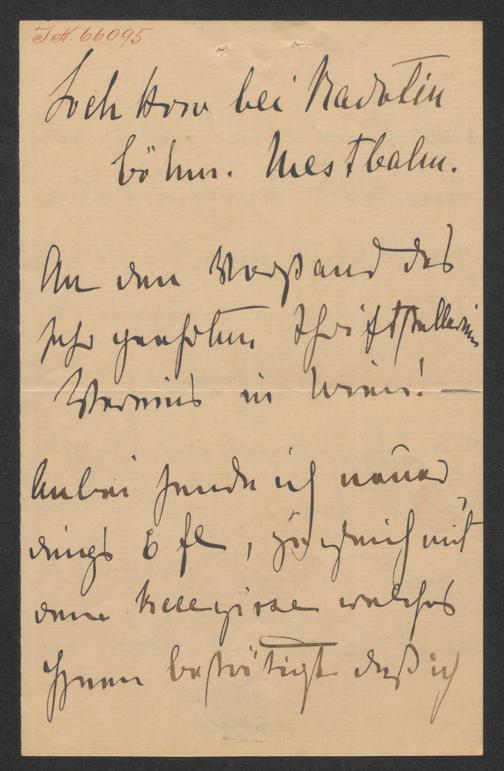 I.N. 66095
Lochkow bei Radotin
böhm. Westbahn.
An den Vorstand des
sehr geehrten Schriftstellerinen
Vereins in Wien! —
Anbei sende ich neuer
dings 6 fl, zugleich mit
dem welches
Ihnen bestätigt daß ich